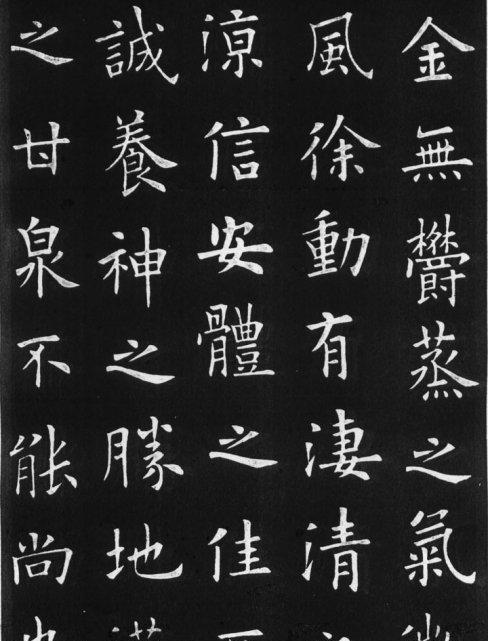 金無欝蒸之氣
風徐動有淒清
涼信安體之佳
誠養神之勝地
之甘泉不能尚